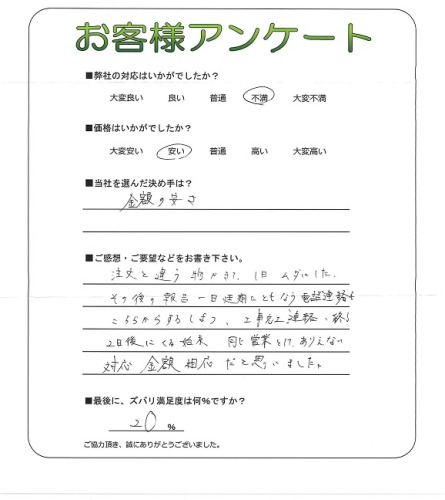 お客様アンケート
■弊社の対応はいかがでしたか?
大変良い 良い 普通 不満 大変不満
■価格はいかがでしたか?
大変安い 安い 普通 高い 大変高い
■当社を選んだ決め手は?
金額の安さ
■ご感想・ご要望などをお書き下さい。
注文と違う物がきて、1日ムダにした。
その後の報告 一日延期にともなう電話連絡も
こちらからするしまつ、工事完工連絡
2日後にくる始末 同じ営業として、ありえない
対応 金額相応だと思いました。
■最後に、ズバリ満足度は何%ですか?
20 %
ご協力頂き、誠にありがとうございました。